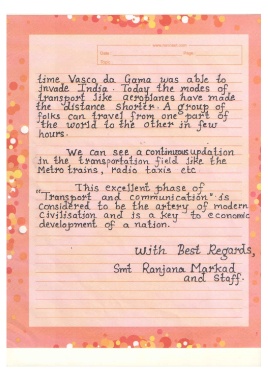 time Vasco da Gama was able to
invade India. Today the modes of
transport like aeroplanes have made
the distance shorter. A group of
folks can travel from one part of
the world to the other in few
hours.
We can see a continuous updation
in the transportation field like the
Metro trains, radio taxis etc
"This excellent phase of
Transport and communication" is
considered to be the artery of modern
Civilisation and is a key to economic
development of a nation.
With Best Regards,
Smt Ranjana Markad
and Staff.